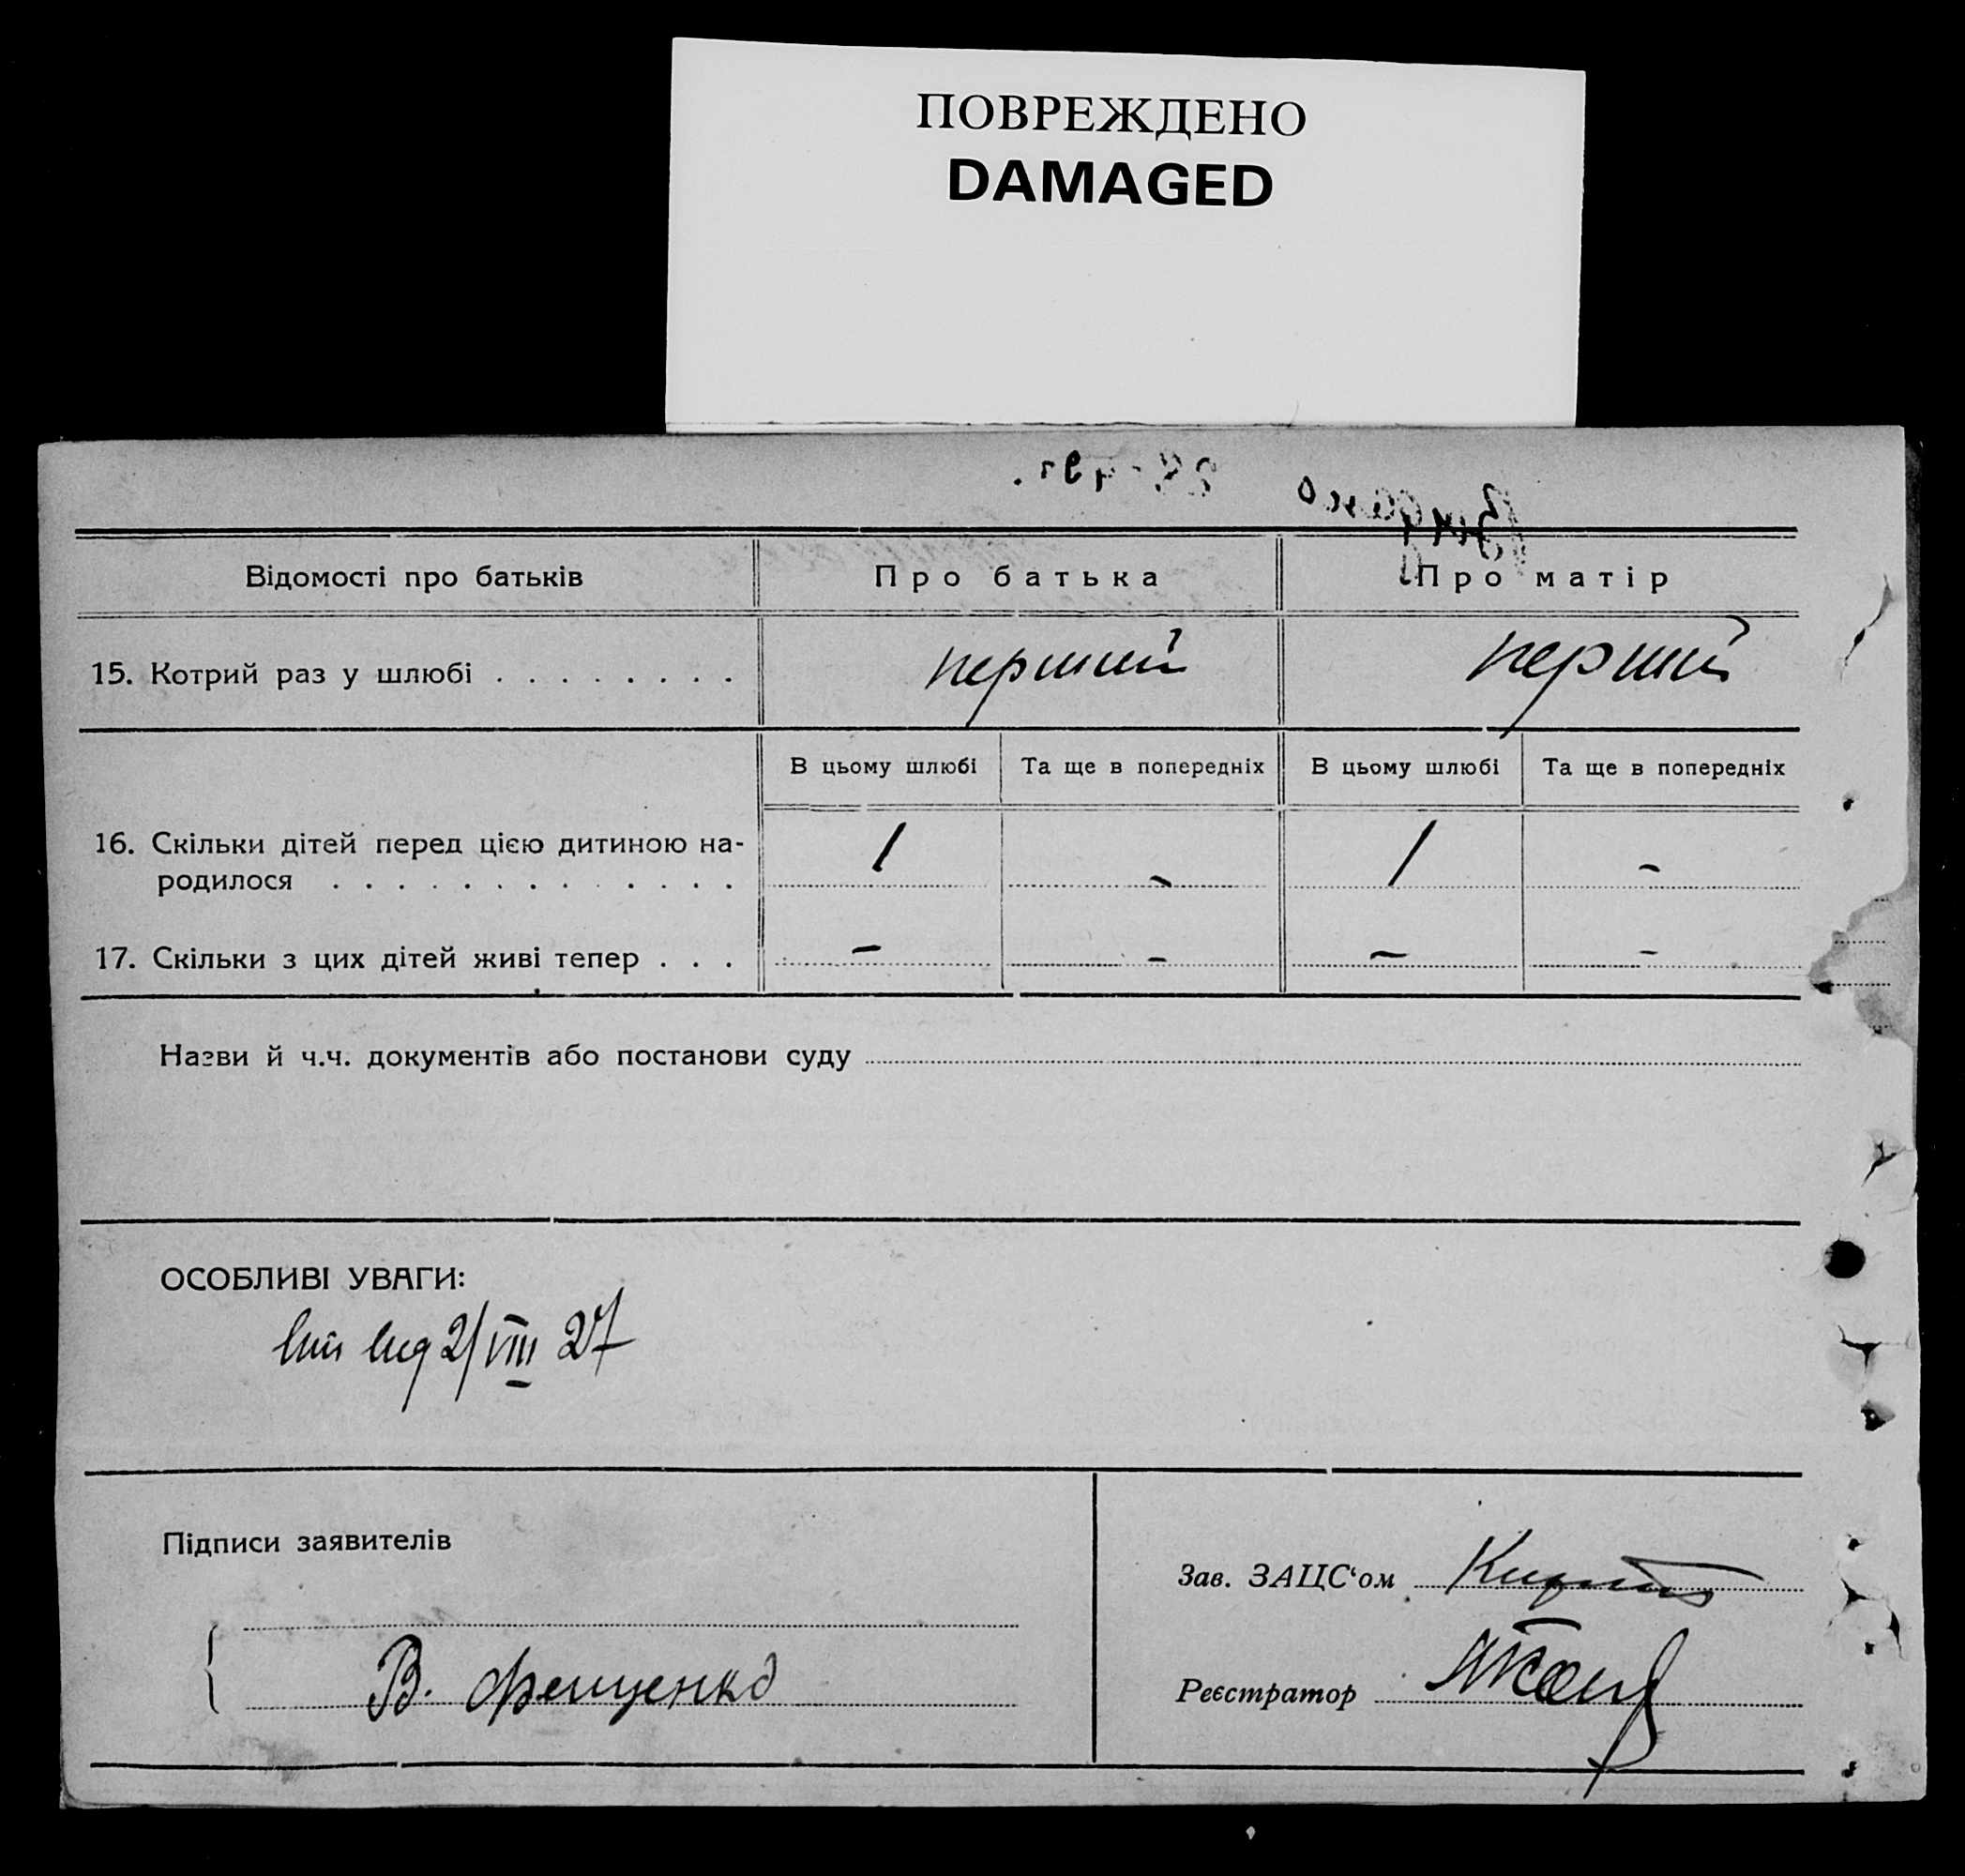 ПОВРЕЖДЕНО
DAMAGED
Відомості про батьків
Про батька
Про матір
15. Котрий раз у шлюбі . . . . . . . .
перший
перший
В цьому шлюбі
Та ще в попередніх
В цьому шлюбі
Та ще в попередніх
16. Скільки дітей перед цією дитиною на-
родилося . . . . . . . . . . . . .
1
-
1
-
17. Скільки з цих дітей живі тепер . . .
-
-
-
-
Назви й ч.ч. документів або постанови суду
ОСОБЛИВІ УВАГИ:
2/VIII 27
Підписи заявителів
В. Фещенко
Зав. ЗАЦС‘ом
Реєстратор